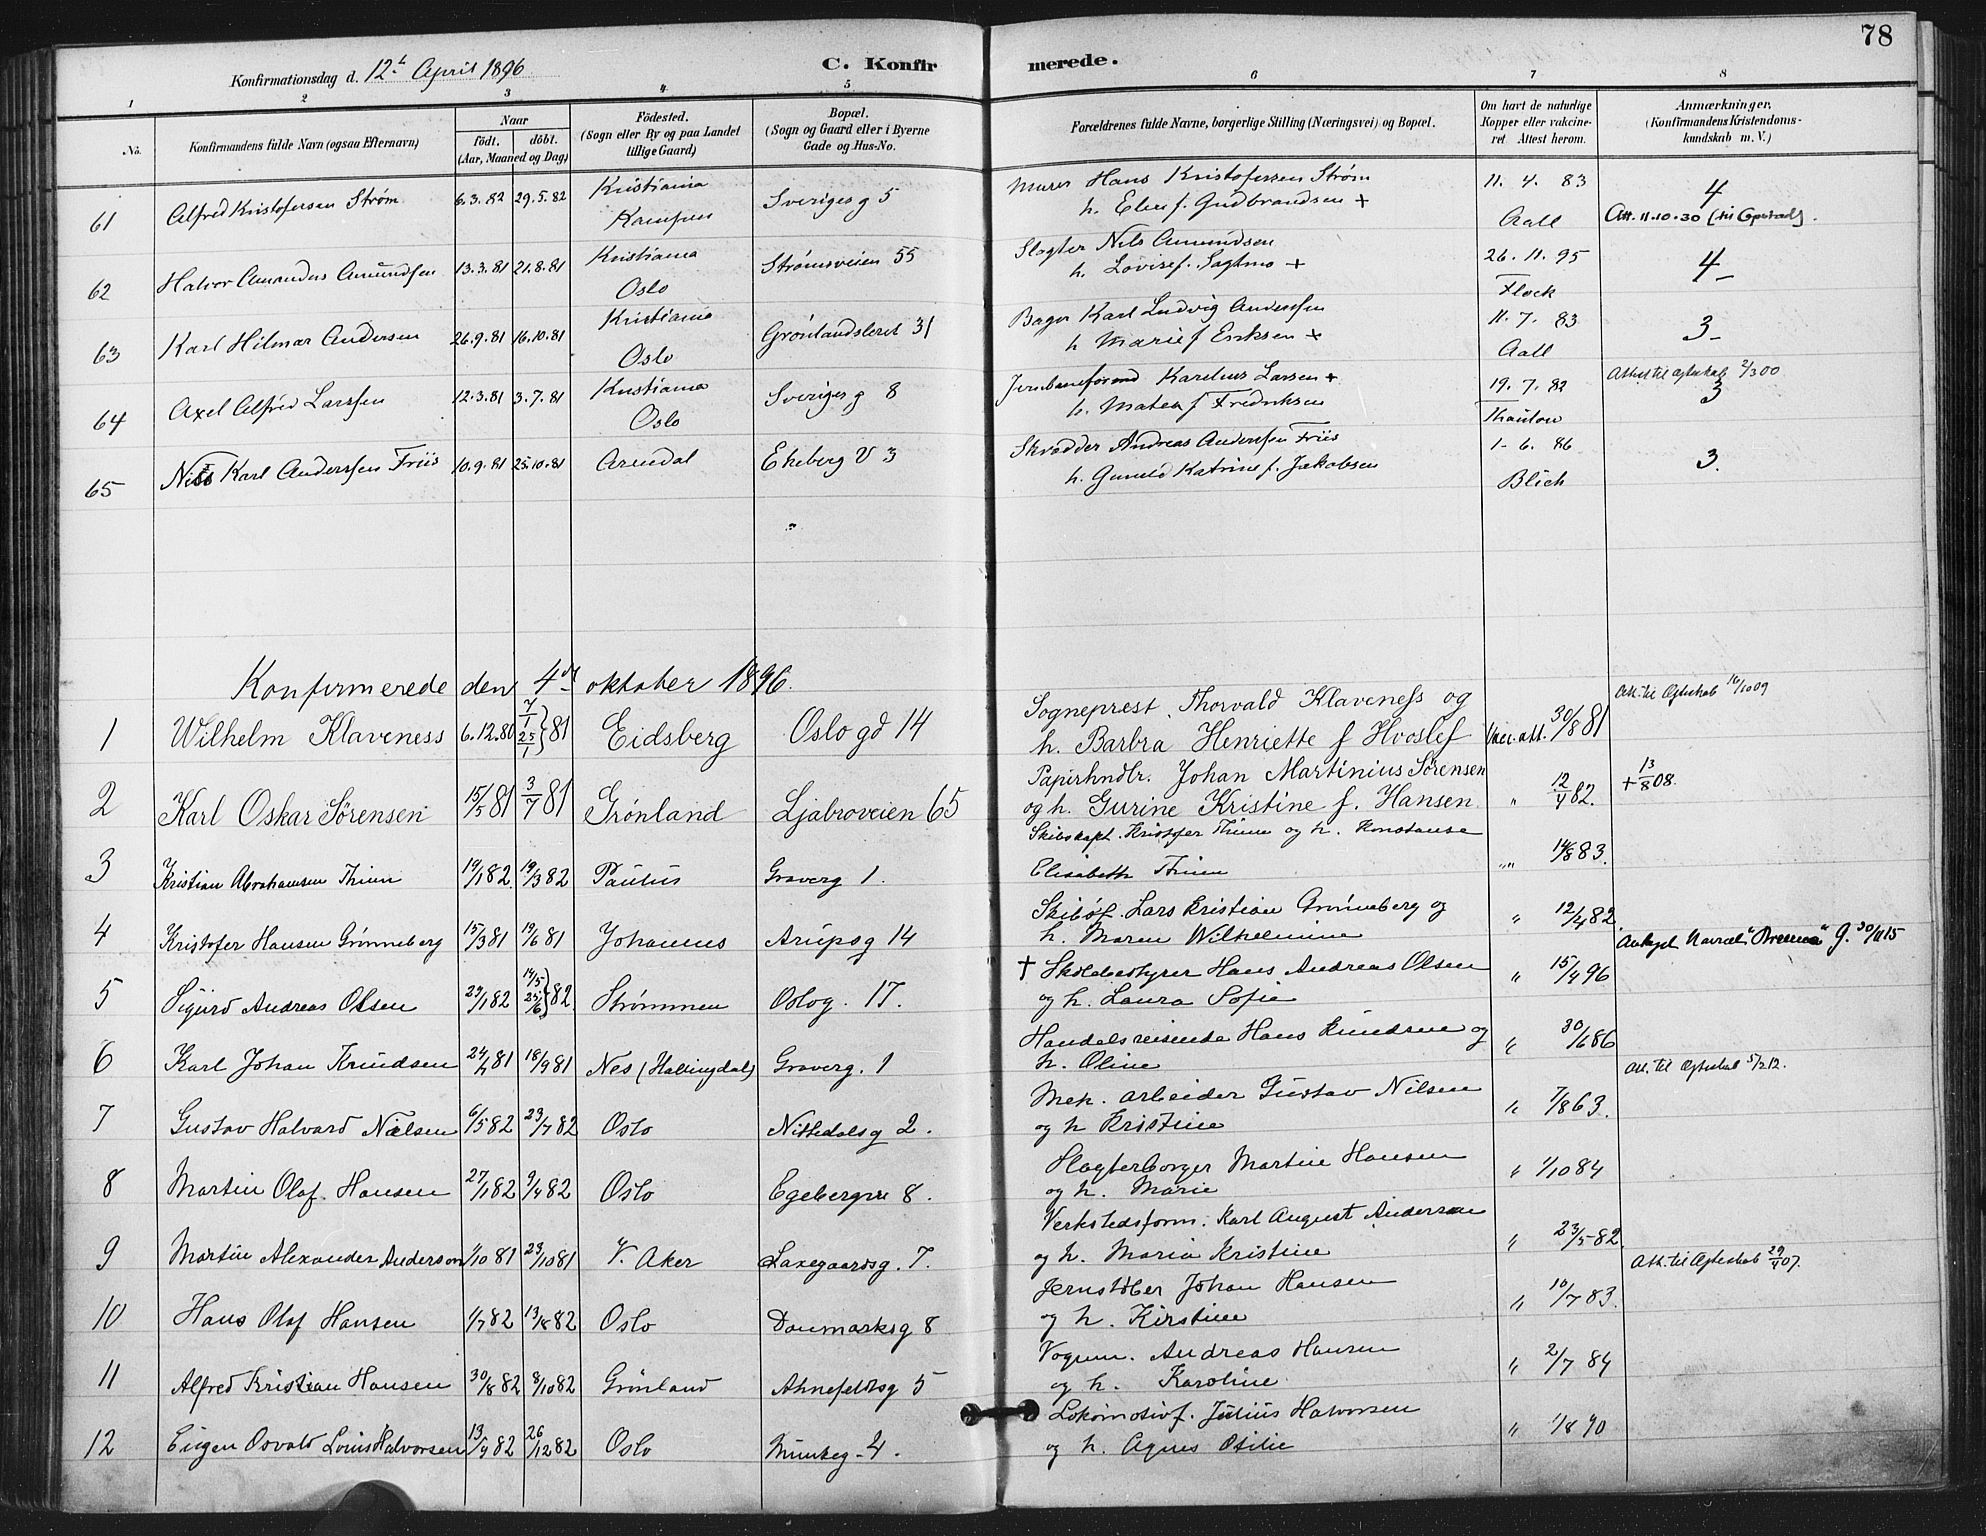 78
Konfirmationsdag d. 12t April 1896 C. Konfirmerede.
1 2 3 4 5 6 7 8
No. Konfirmandens fulde Navn (ogsaa Efternavn) Naar født. døbt. (Aar, Maaned og Dag) Fødested. (Sogn eller By og paa Landet tillige Gaard) Bopæl. (Sogn og Gaard eller i Byerne Gade og Hus-No. Forældrenes fulde Navne, borgerlige Stilling (Næringsvei) og Bopæl. Om havt de naturlige Kopper eller vakcineret Attest herom. Anmærkninger. (Konfirmandens Kristendomskundskab m. V.)
61 Alfred Kristofersen Strøm 6.3.82 29.5.82 Kristiania Kampen Sveriges g 5 Murer Hans Kristofersen Strøm h. Elen f. Gudbrandsen + 11. 4. 83 Aall 4 Att. 11.10.30
62 Halvor Amandus Amundsen 13.3.81 21.8.81 Kristiania Oslo Strømsveien 55 Slagter Nils Amundsen h. Lovise f. Sagtmo + 26. 11. 95 Flock 4-
63 Karl Hilmar Andersen 26.9.81 16.10.81 Kristiania Oslo Grønlandsleret 31 Bager Karl Ludvig Anderssen h Marie f Eriksen + 11. 7. 83 Aall 3-
64 Axel Alfred Larssen 12.3.81 3.7.81 Kristiania Oslo Sveriges g 8 Karelius Larsen + h. Matea f Fredriksen 19. 7. 82 Thaulow Attest til Ægteskab 2/3 00 3
65 Nils Karl Anderssen Friis 10.9.81 25.10.81 Arendal Ekeberg V 3 Skrædder Andreas Anderssen Friis h. Gunild Katrine f. Jakobsen 1-6. 86 Blich 3.
Konfirmerede den 4de oktober 1896.
1 Wilhelm Klaveness 6.12.80 7/1 25/1 } 81 Eidsberg Oslo gd 14 Sogneprest Thorvald Klaveness og h. Barbra Henriette f Hvoslef Vacc. att. 30/8 81 Att. til Ægteskab 16/10 09
2 Karl Oskar Sørensen 15/5 81 3/7 81 Grønland Ljabroveien 65 Papirhndlr. Johan Martinius Sørensen og h. Gurine Kristine f. Hansen " 12/4 82. + 13/8 08.
3 Kristian Abrahamsen Thim 19/1 82 19/3 82 Paulus Graverg 1. Skibskapt. Kristofer Thime og h. Konstanse Elisabeth Thime "" 14/8 83.
4 Kristofer Hansen Grønneberg 15/3 81 19/6 81 Johannes Arups g 14 Lars Kristian Grønneberg og h. Maren Wilhelmine " 12/4 82
5 Sigurd Andreas Olsen 29/1 82 14/5 25/6 } 82 Strømmen Oslog. 17. † Skolebestyrer Hans Andreas Olsen og h. Laura Sofie " 15/4 96 Antagt Navnet "Bremea" g. 30/11 15
6 Karl Johan Knudsen 24/4 81 18/9 81 Nes (Hallingdal) Graverg. 1 Handelsreisende Hans Knudsen og h. Oline " 30/6 86
7 Gustav Halvard Nielsen 6/5 82 23/7 82 Oslo Nittedals g 2. Mek. arbeider Gustav Nilsen og h Kristine " 7/8 63. Att. til Ægteskab 5/2 12.
8 Martin Olaf Hansen 27/1 82 9/4 82 Oslo Egeberg 8. Slagterborger Martin Hansen og h. Marie " 1/10 84
9 Martin Alexander Anderson 1/10 81 23/10 81 V. Aker Laxegaardsg. 7. Verkstedsform. Karl August Anderson og h. Maria Kristine " 23/5 82.
10 Hans Olaf Hansen 1/7 82 13/8 82 Oslo Danmarks g 8 Jernstøber Johan Hansen og h. Kirstine " 10/7 83. Att. til Ægteskab 29/4 07.
11 Alfred Kristian Hansen 30/8 82 8/10 82 Grønland Ahnefeldts g 5 Vognm. Andreas Hansen og h. Karoline " 2/7 84
12 Eugen Osvald Louis Halvorsen 13/9 82 26/12 82 Oslo Munkeg-4. Lokomotivf. Julius Halvorsen og h. Agnes Otilie " 1/8 90